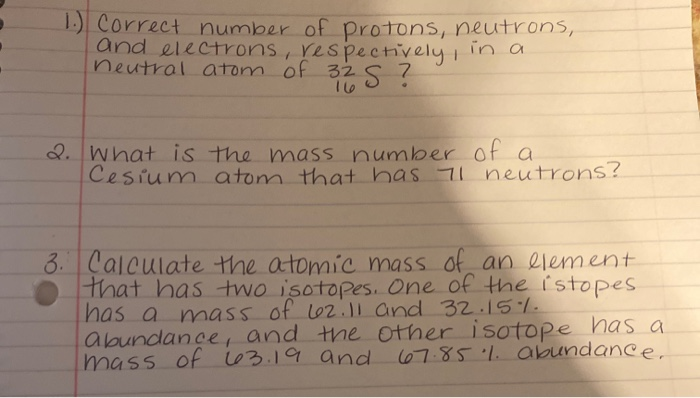 1.) Correct number of protons, neutrons,
and electrons, respectively, in a
neutral atom of 32 16 S ?
2. What is the mass number of a
Cesium atom that has 71 neutrons?
3. Calculate the atomic mass of an element
that has two isotopes. One of the istopes
has a mass of 62.11 and 32.15%
abundance, and the other isotope has a
mass of 63.19 and 67.85 % abundance.